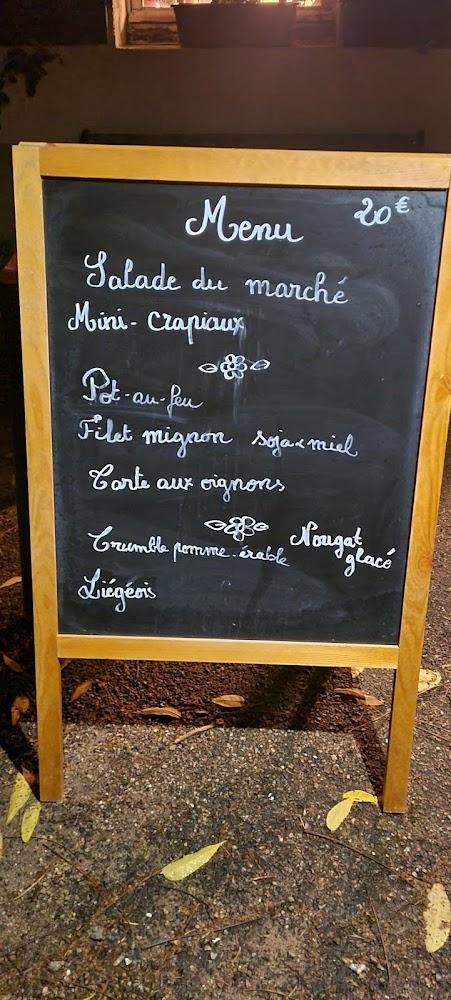 Menu 20€
Salade du marché
Mini-Crapiaux
Pot-au-feu
Filet mignon soja & miel
Tarte aux oignons
Crumble pomme-érable
Nougat glacé
Liégeois